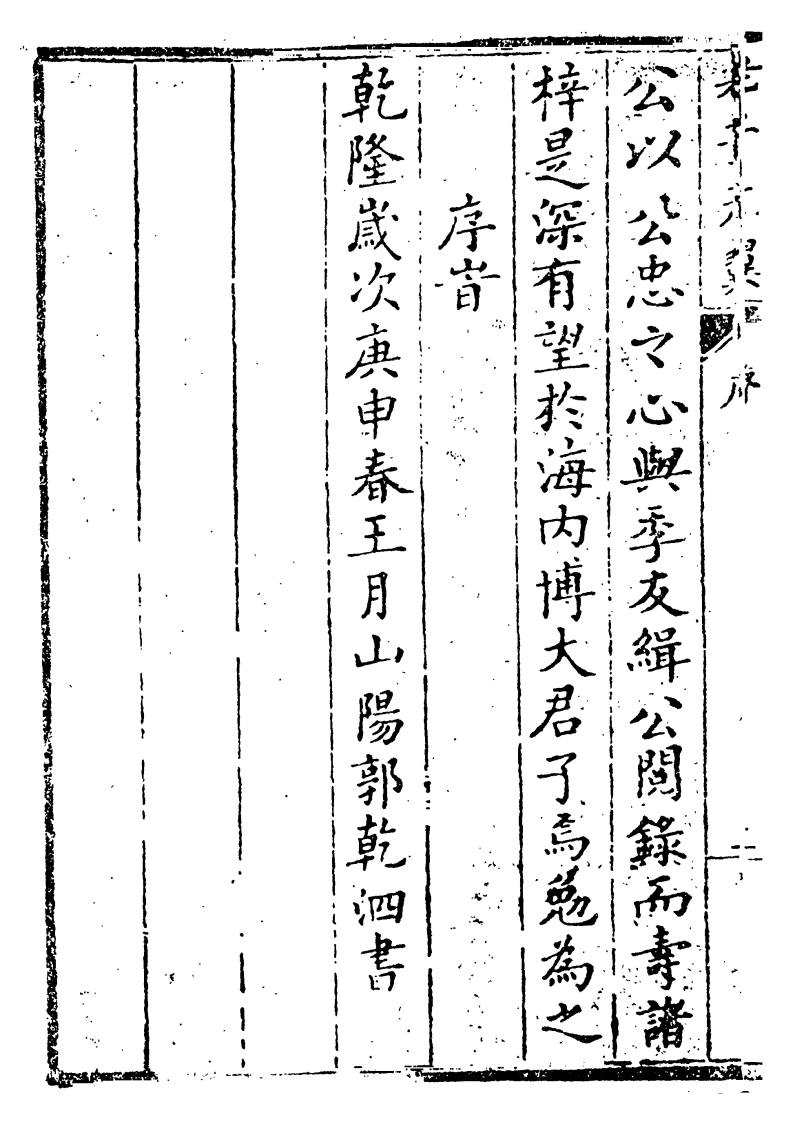 老子元翼 序 二
公以公忠之心與季友緝公閱錄而壽諸
梓是深有望於海内博大君子焉勉為之
序旹
乾隆歲次庚申春王月山陽郭乾泗書